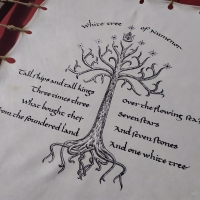 White tree of Numenor
Tall ships and tall kings
Three times three
What brought they
From the foundered land
Over the flowing sea?
Seven stars
And seven stones
And one white tree